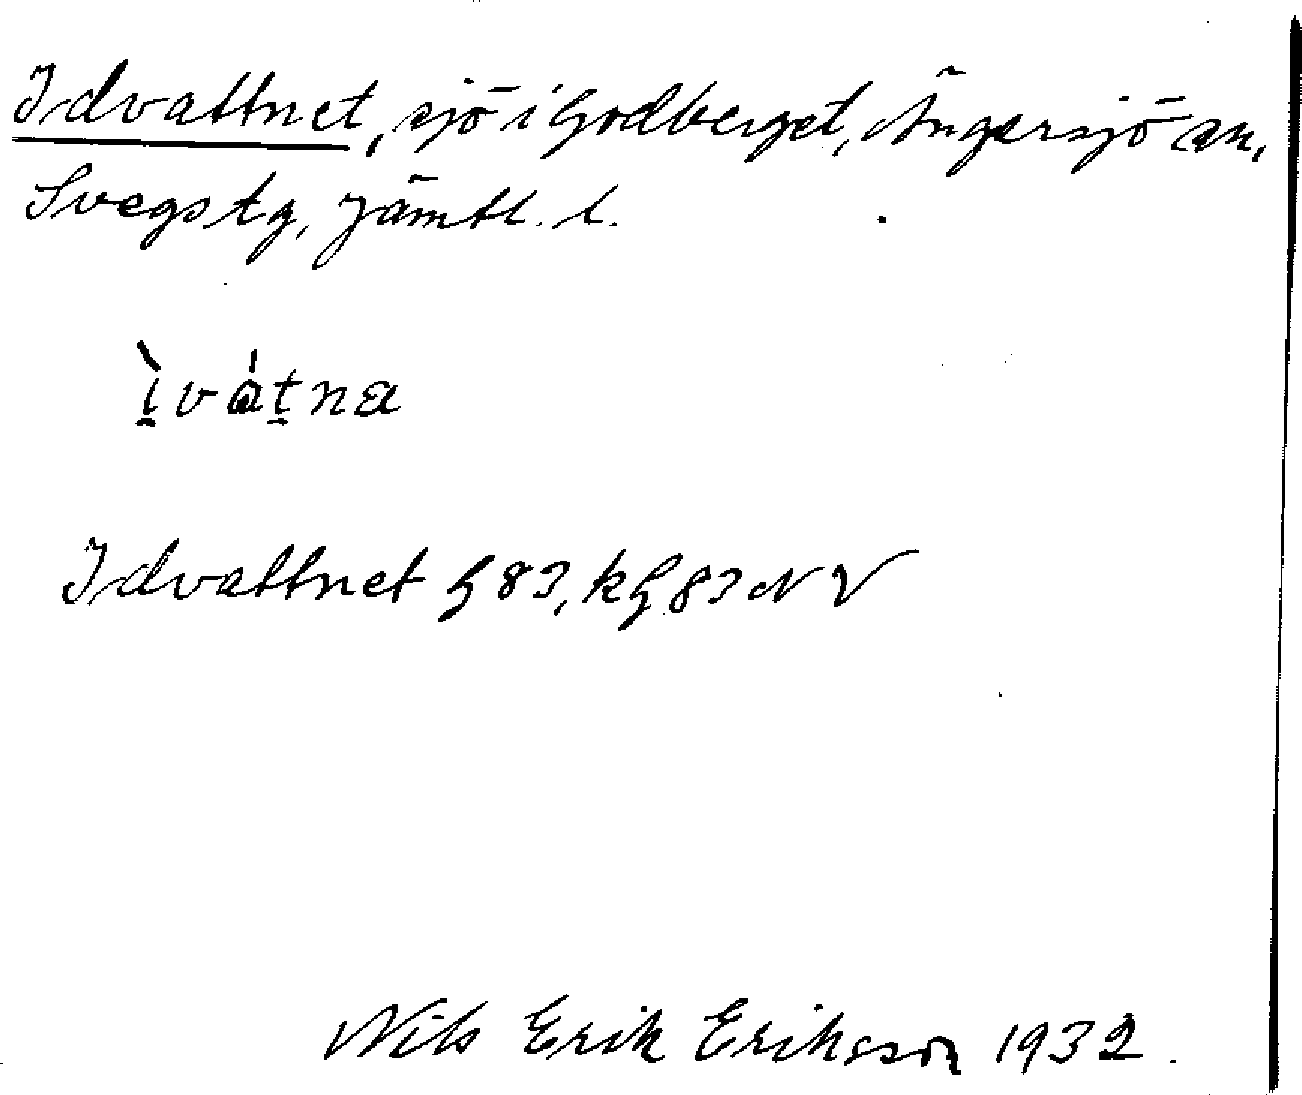 Idvattnet, sjö i Godberget, Ängersjö sn,
Svegs tg, Jämtl. l.
ı̱̀vát̠na
Idvattnet G 83, kG 83 NV
Nils Erik Eriksson 1932.